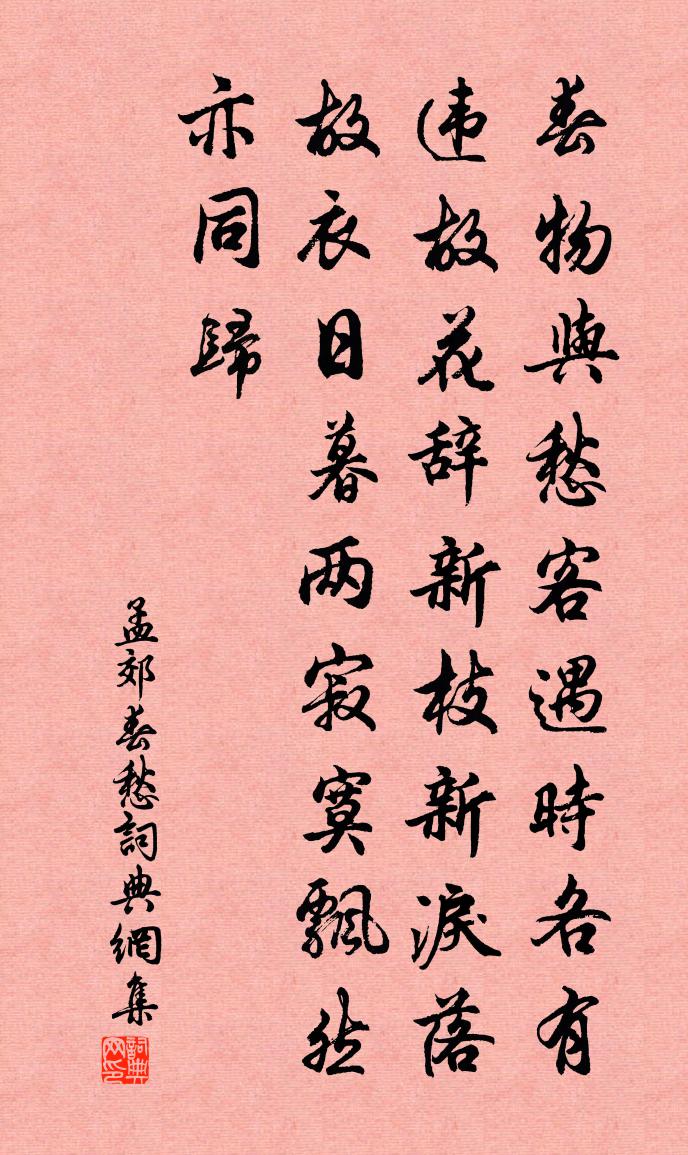 春物與愁客遇時各有
违故花辞新枝新淚落
故衣日暮两寂寞飄然
亦同歸
孟郊春愁詞典網集
詞典网印